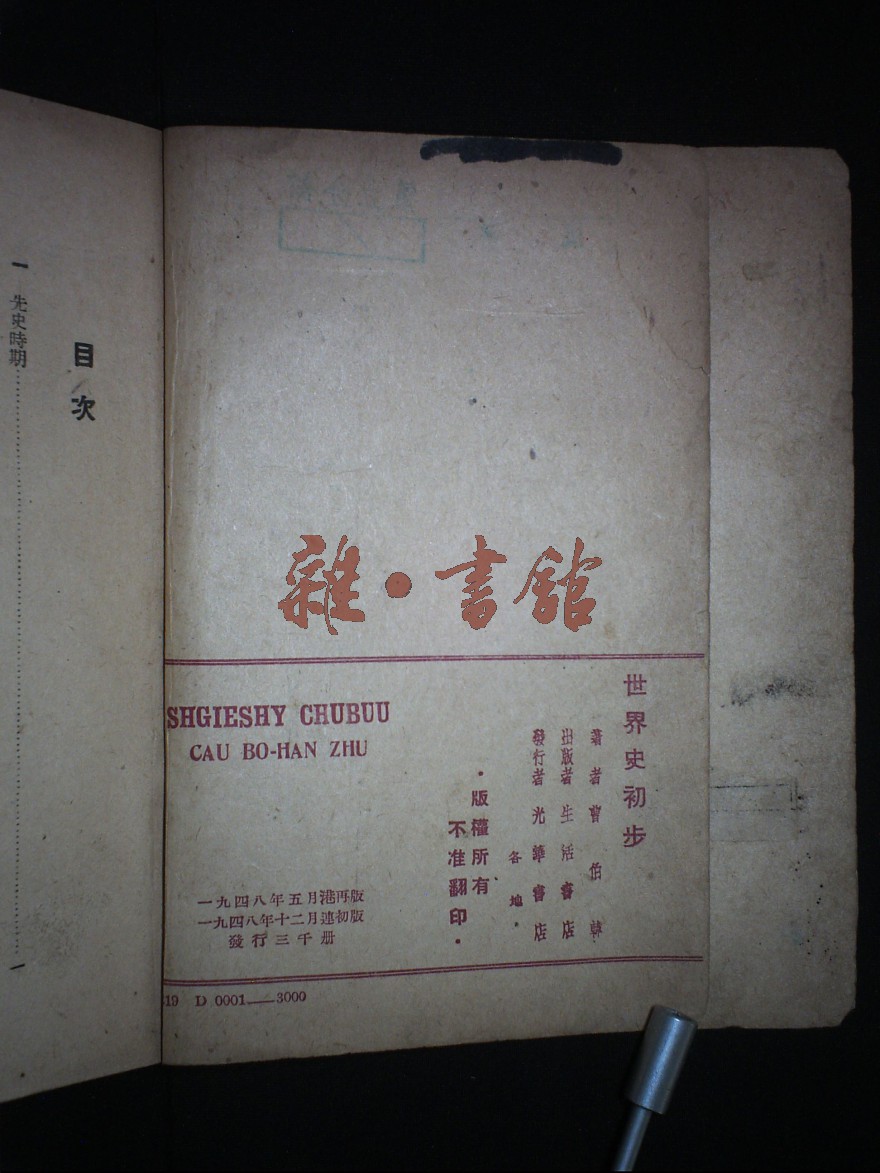 目次
一 先史時期
一
雜·書館
世界史初步
著者 曹伯韓
出版者 生活書店
發行者 光華書店
各地·
·版權所有
不准翻印·
SHGIESHY CHUBUU
CAU BO-HAN ZHU
一九四八年五月港再版
一九四八年十二月連初版
發行三千册
19 D 0001——3000